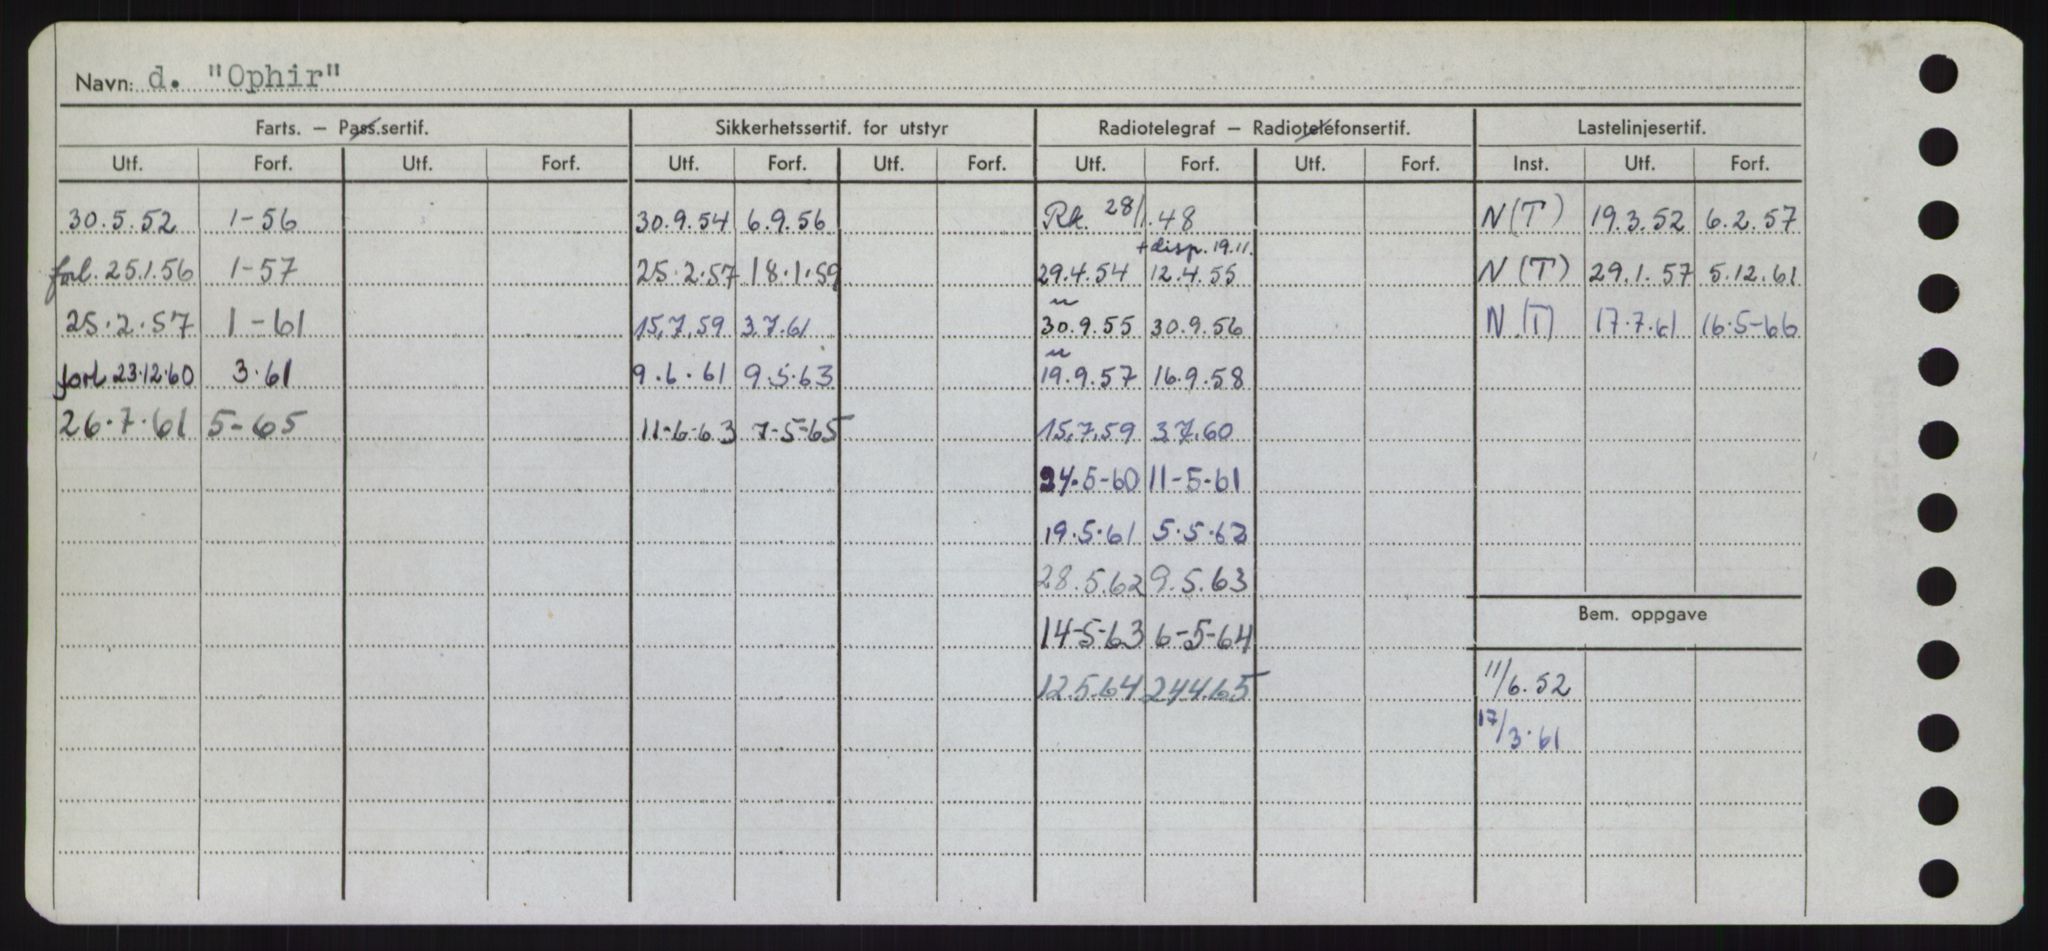 Navn: d. "Ophir"
Farts. – Pass.sertif. Sikkerhetssertif. for utstyr Radiotelegraf – Radiotelefonsertif. Lastelinjesertif.
Utf. Forf. Utf. Forf. Utf. Forf. Utf. Forf. Utf. Forf. Utf. Forf. Inst. Utf. Forf.
30.5.52 1-56 30.9.54 6.9.56 Rk. 28/1.48 N(T) 19.3.52 6.2.57
+disp. 19.11.
forl. 25.1.56 1-57 25.2.57 18.1.59 29.4.54 12.4.55 N(T) 29.1.57 5.12.61
25.2.57 1-61 15.7.59 3.7.61 30.9.55 30.9.56 N(T) 17.7.61 16-5-66
forl 23.12.60 3.61 9.6.61 9.5.63 19.9.57 16.9.58
26.7.61 5-65 11-6-63 7-5-65 15.7.59 3.7.60
24.5-60 11-5-61
19.5.61 5.5.62
28.5.62 9.5.63
14-5-63 6-5-64
12.5.64 24.4.65
Bem. oppgave
11/6.52
17/3.61